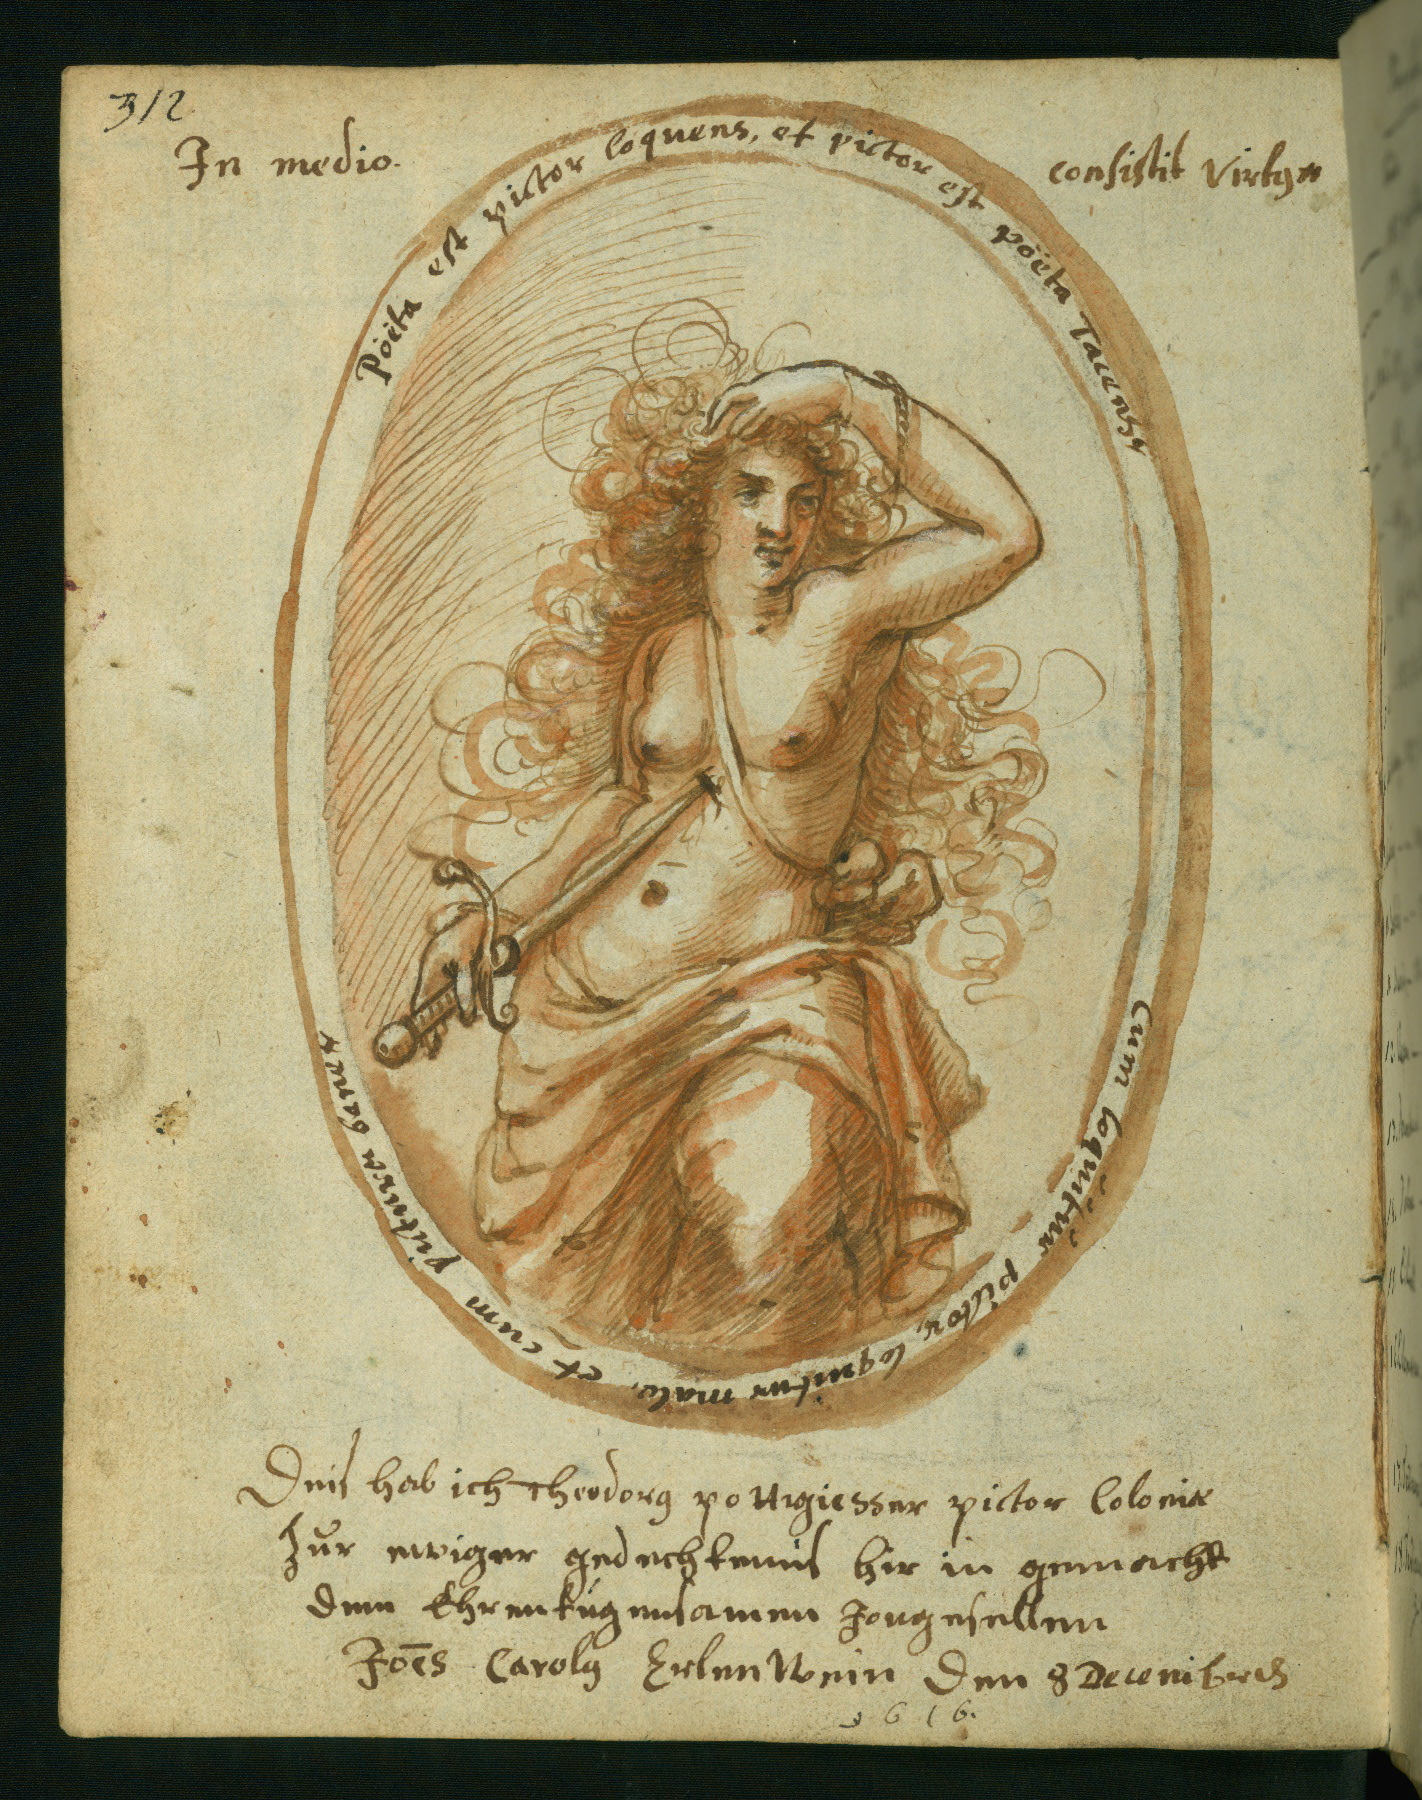 312
In medio.
consistit Virtus
Poëta est pictor loquens, et pictor est poëta Tacens
Cum loquitur pictor, loquitur male, et cum pictura
Deis hab ich Theodorg pottgiesser pictor Coloniæ
Zur ewiger gedechtenus hir in gemacht
dem Ehrentugensamen Jongesellen
Joēs Carolg Erlenwein Den 8 Decembris
1616.